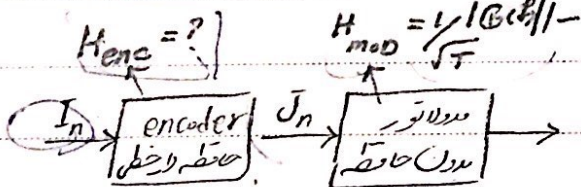 H_enc = ?
H_MOD = 1/√T
I_n
encoder
حافظه دار خطی
J_n
مدولاتور
بدون حافظه